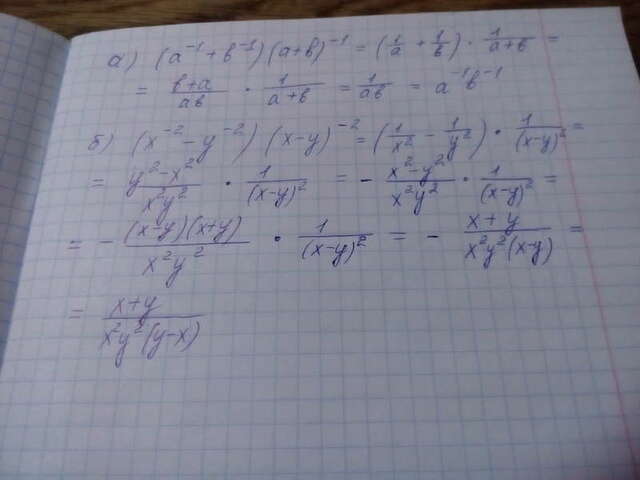 а) (a⁻¹ + b⁻¹)(a+b)⁻¹ = (1/a + 1/b) · 1/(a+b) =
= (b+a)/(ab) · 1/(a+b) = 1/(ab) = a⁻¹b⁻¹
б) (x⁻² − y⁻²)(x−y)⁻² = (1/x² − 1/y²) · 1/(x−y)² =
= (y²−x²)/(x²y²) · 1/(x−y)² = − (x²−y²)/(x²y²) · 1/(x−y)² =
= − (x−y)(x+y)/(x²y²) · 1/(x−y)² = − (x+y)/(x²y²(x−y)) =
= (x+y)/(x²y²(y−x))